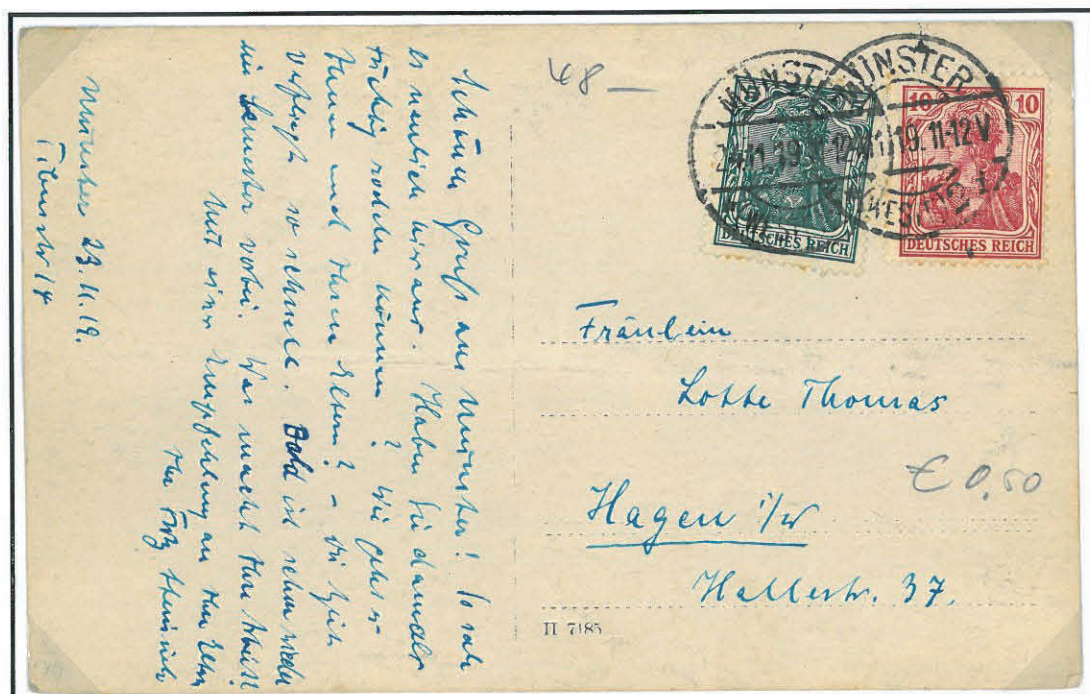 Münster 23.11.19.
Schönen Gruß aus Münster! So sah
es neulich hier aus. Haben Sie damals
tüchtig rodeln können? Wie geht es
Ihnen und Ihren Eltern? – Die Zeit
verfliegt so schnell. Bald ist schon wieder
ein Semester vorbei. Was macht Ihre Arbeit?
Mit einer Empfehlung an Ihre Eltern
Ihr Fritz
48 –
MÜNSTER
MÜNSTER
24.11.19.
19. 11-12 V
10 10
DEUTSCHES REICH
DEUTSCHES REICH
Fräulein
Lotte Thomas
€ 0,50
Hagen i/W
Hallestr. 37.
II 7185